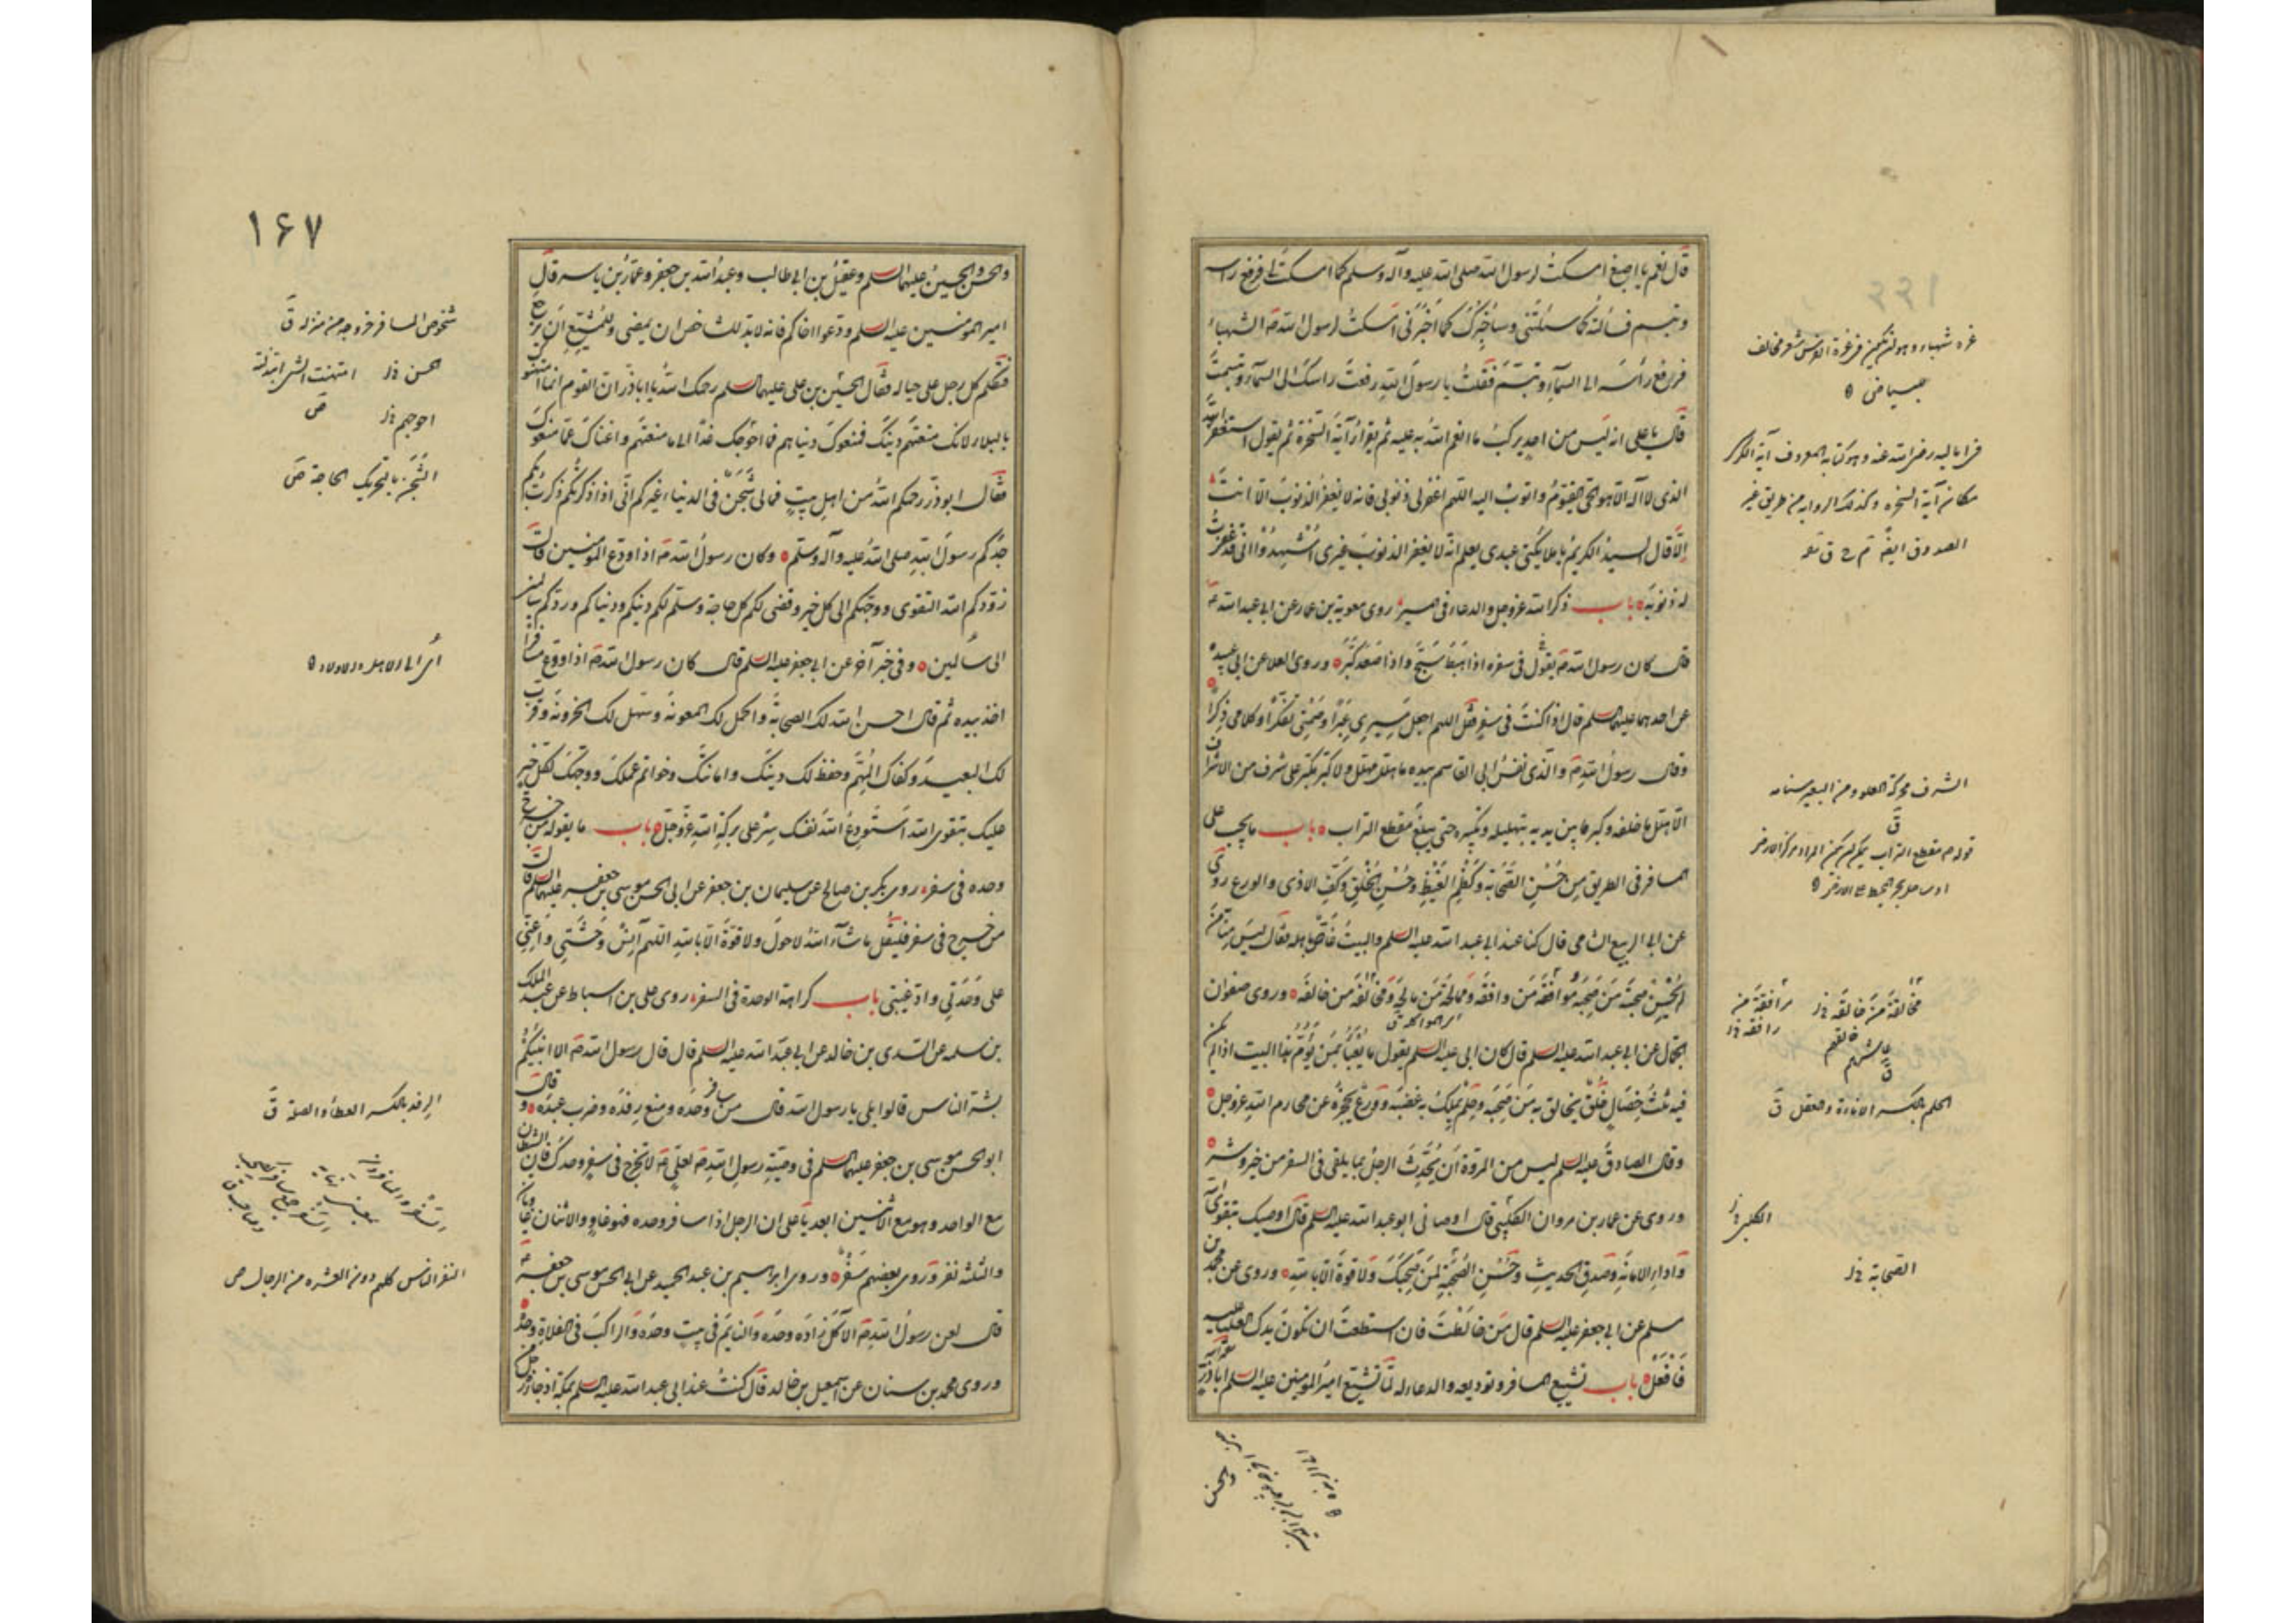 قال نعم يا اصبغ امسكت لرسول الله صلى الله عليه وآله وسلم كما امسكت لى فرفع راسه
وتبسم فسألته كما سئلتنى وساخبرك كما اخبرنى امسكت لرسول الله ص الشهباء
فرفع رأسه الى السماء وتبسم فقلت يا رسول الله رفعت راسك الى السماء وتبسمت
قال يا على انه ليس من احد يركب ما انعم الله به عليه ثم يقرأ آية السخرة ثم يقول استغفر الله
الذى لا آله الا هو الحى القيوم واتوب اليه اللهم اغفر لى ذنوبى فانه لا يغفر الذنوب الا انت
الا قال السيد الكريم يا ملائكتى عبدى يعلم انه لا يغفر الذنوب غيرى اشهدوا انى قد غفرت
له ذنوبه باب ذكر الله عز وجل والدعاء فى المسير روى معوية بن عمار عن ابى عبد الله ع
قال كان رسول الله ص يقول فى سفره اذا هبط سبح واذا صعد كبر وروى العلا عن ابى عبيدة
عن احدهما عليهما السلم قال اذا كنت فى سفر فقل اللهم اجعل مسيرى عبرا وصمتى تفكرا وكلامى ذكرا
وقال رسول الله ص والذى نفس ابى القاسم بيده ما هلل مهلل ولا كبر مكبر على شرف من الاشراف
الا هلل ما خلفه وكبر ما بين يديه بتهليله وتكبيره حتى يبلغ مقطع التراب باب ما يجب على
المسافر فى الطريق من حسن الصحابة وكظم الغيظ وحسن الخلق وكف الاذى والورع روى
عن ابى الربيع الشامى قال كنا عند ابى عبد الله عليه السلم والبيت غاص باهله فقال ليس منا من
لم يحسن صحبة من صحبه ومرافقة من وافقه وممالحة من مالحه ومخالقة من خالقه وروى صفوان
الجمال عن ابى عبد الله عليه السلم قال كان ابى عليه السلم يقول ما يعبأ بمن يؤم هذا البيت اذا لم يكن
فيه ثلث خصال خلق يخالق به من صحبه وحلم يملك به غضبه وورع يحجزه عن محارم الله عز وجل
وقال الصادق عليه السلم ليس من المروة أن يحدث الرجل بما يلقى فى السفر من خير وشر
وروى عن عمار بن مروان الكلبى قال اوصانى ابو عبد الله عليه السلم قال اوصيك بتقوى الله
واداء الامانة وصدق الحديث وحسن الصحبة لمن صحبك ولا قوة الا بالله وروى عن محمد بن
مسلم عن ابى جعفر عليه السلم قال من خالطت فان استطعت ان تكون يدك العليا عليه
فافعل باب تشييع المسافر وتوديعه والدعاء له لما تشيع امير المؤمنين عليه السلم اباذر
آية السخرة وكذلك الرواية من طريق غير
الصدوق ايضا
الشرف محركة العلو ومن البعير سنامه
ق
مخالقة من خالقه خ ل
مرافقة من
رافقه خ ل
خالقهم
عاشرهم
ق
الحلم بالكسر الاناءة والعقل ق
الكلبى خ ل
الصحابة خ ل
١٦٧
والحسن والحسين عليهما السلم وعقيل بن ابى طالب وعبد الله بن جعفر وعمار بن ياسر قال
امير المؤمنين عليه السلم ودعوا اخاكم فانه لابد للشاخص ان يمضى وللمشيع ان يرجع
فتكلم كل رجل على حياله فقال الحسين بن على عليهما السلم رحمك الله يا اباذر ان القوم انما امتهنوك
بالبلاء لانك منعتهم دينك فمنعوك دنياهم فما احوجك غدا الى ما منعتهم واغناك عما منعوك
فقال ابوذر رحمكم الله من اهل بيت فما لى شجن فى الدنيا غيركم انى اذا ذكرتكم ذكرت بكم
جدكم رسول الله صلى الله عليه وآله وسلم وكان رسول الله ص اذا ودع المؤمنين قال
زودكم الله التقوى ووجهكم الى كل خير وقضى لكم كل حاجة وسلم لكم دينكم ودنياكم وردكم سالمين
الى سالمين وفى خبر آخر عن ابى جعفر عليه السلم قال كان رسول الله ص اذا ودع مسافرا
اخذ بيده ثم قال احسن الله لك الصحابة واكمل لك المعونة وسهل لك الحزونة وقرب
لك البعيد وكفاك المهم وحفظ لك دينك وامانتك وخواتم عملك ووجهك لكل خير
عليك بتقوى الله استودع الله نفسك سر على بركة الله عز وجل باب ما يقوله من خرج
وحده فى سفر روى بكر بن صالح عن سليمان بن جعفر عن ابى الحسن موسى بن جعفر عليهما السلم قال
من خرج فى سفر فليقل ما شاء الله لا حول ولا قوة الا بالله اللهم آنس وحشتى واعنى
على وحدتى واد غيبتى باب كراهة الوحدة فى السفر روى على بن اسباط عن عبد الملك
بن سلمه عن السدى بن خالد عن ابى عبد الله عليه السلم قال قال رسول الله ص الا انبئكم
بشر الناس قالوا بلى يا رسول الله قال من سافر وحده ومنع رفده وضرب عبده وقال
ابو الحسن موسى بن جعفر عليهما السلم فى وصية رسول الله ص لعلى ع لا تخرج فى سفر وحدك فان الشيطان
مع الواحد وهو مع الاثنين ابعد يا على ان الرجل اذا سافر وحده فهو غاو والاثنان غاويان
والثلثة نفر وروى بعضهم سفر وروى ابراهيم بن عبد الحميد عن ابى الحسن موسى بن جعفر ع
قال لعن رسول الله ص الآكل زاده وحده والنايم فى بيت وحده والراكب فى الفلاة وحده
وروى محمد بن سنان عن اسمعيل بن خالد قال كنت عند ابى عبد الله عليه السلم بمكة اذ جاءه رجل من
شخوص المسافر خروجه من منزله ق
امتهنت الشىء ابتذلته
ص
احوجهم خ ل
الشجن بالتحريك الحاجة ص
الرفد بالكسر العطاء والصلة ق
النفر الناس كلهم ودون العشرة من الرجال ص